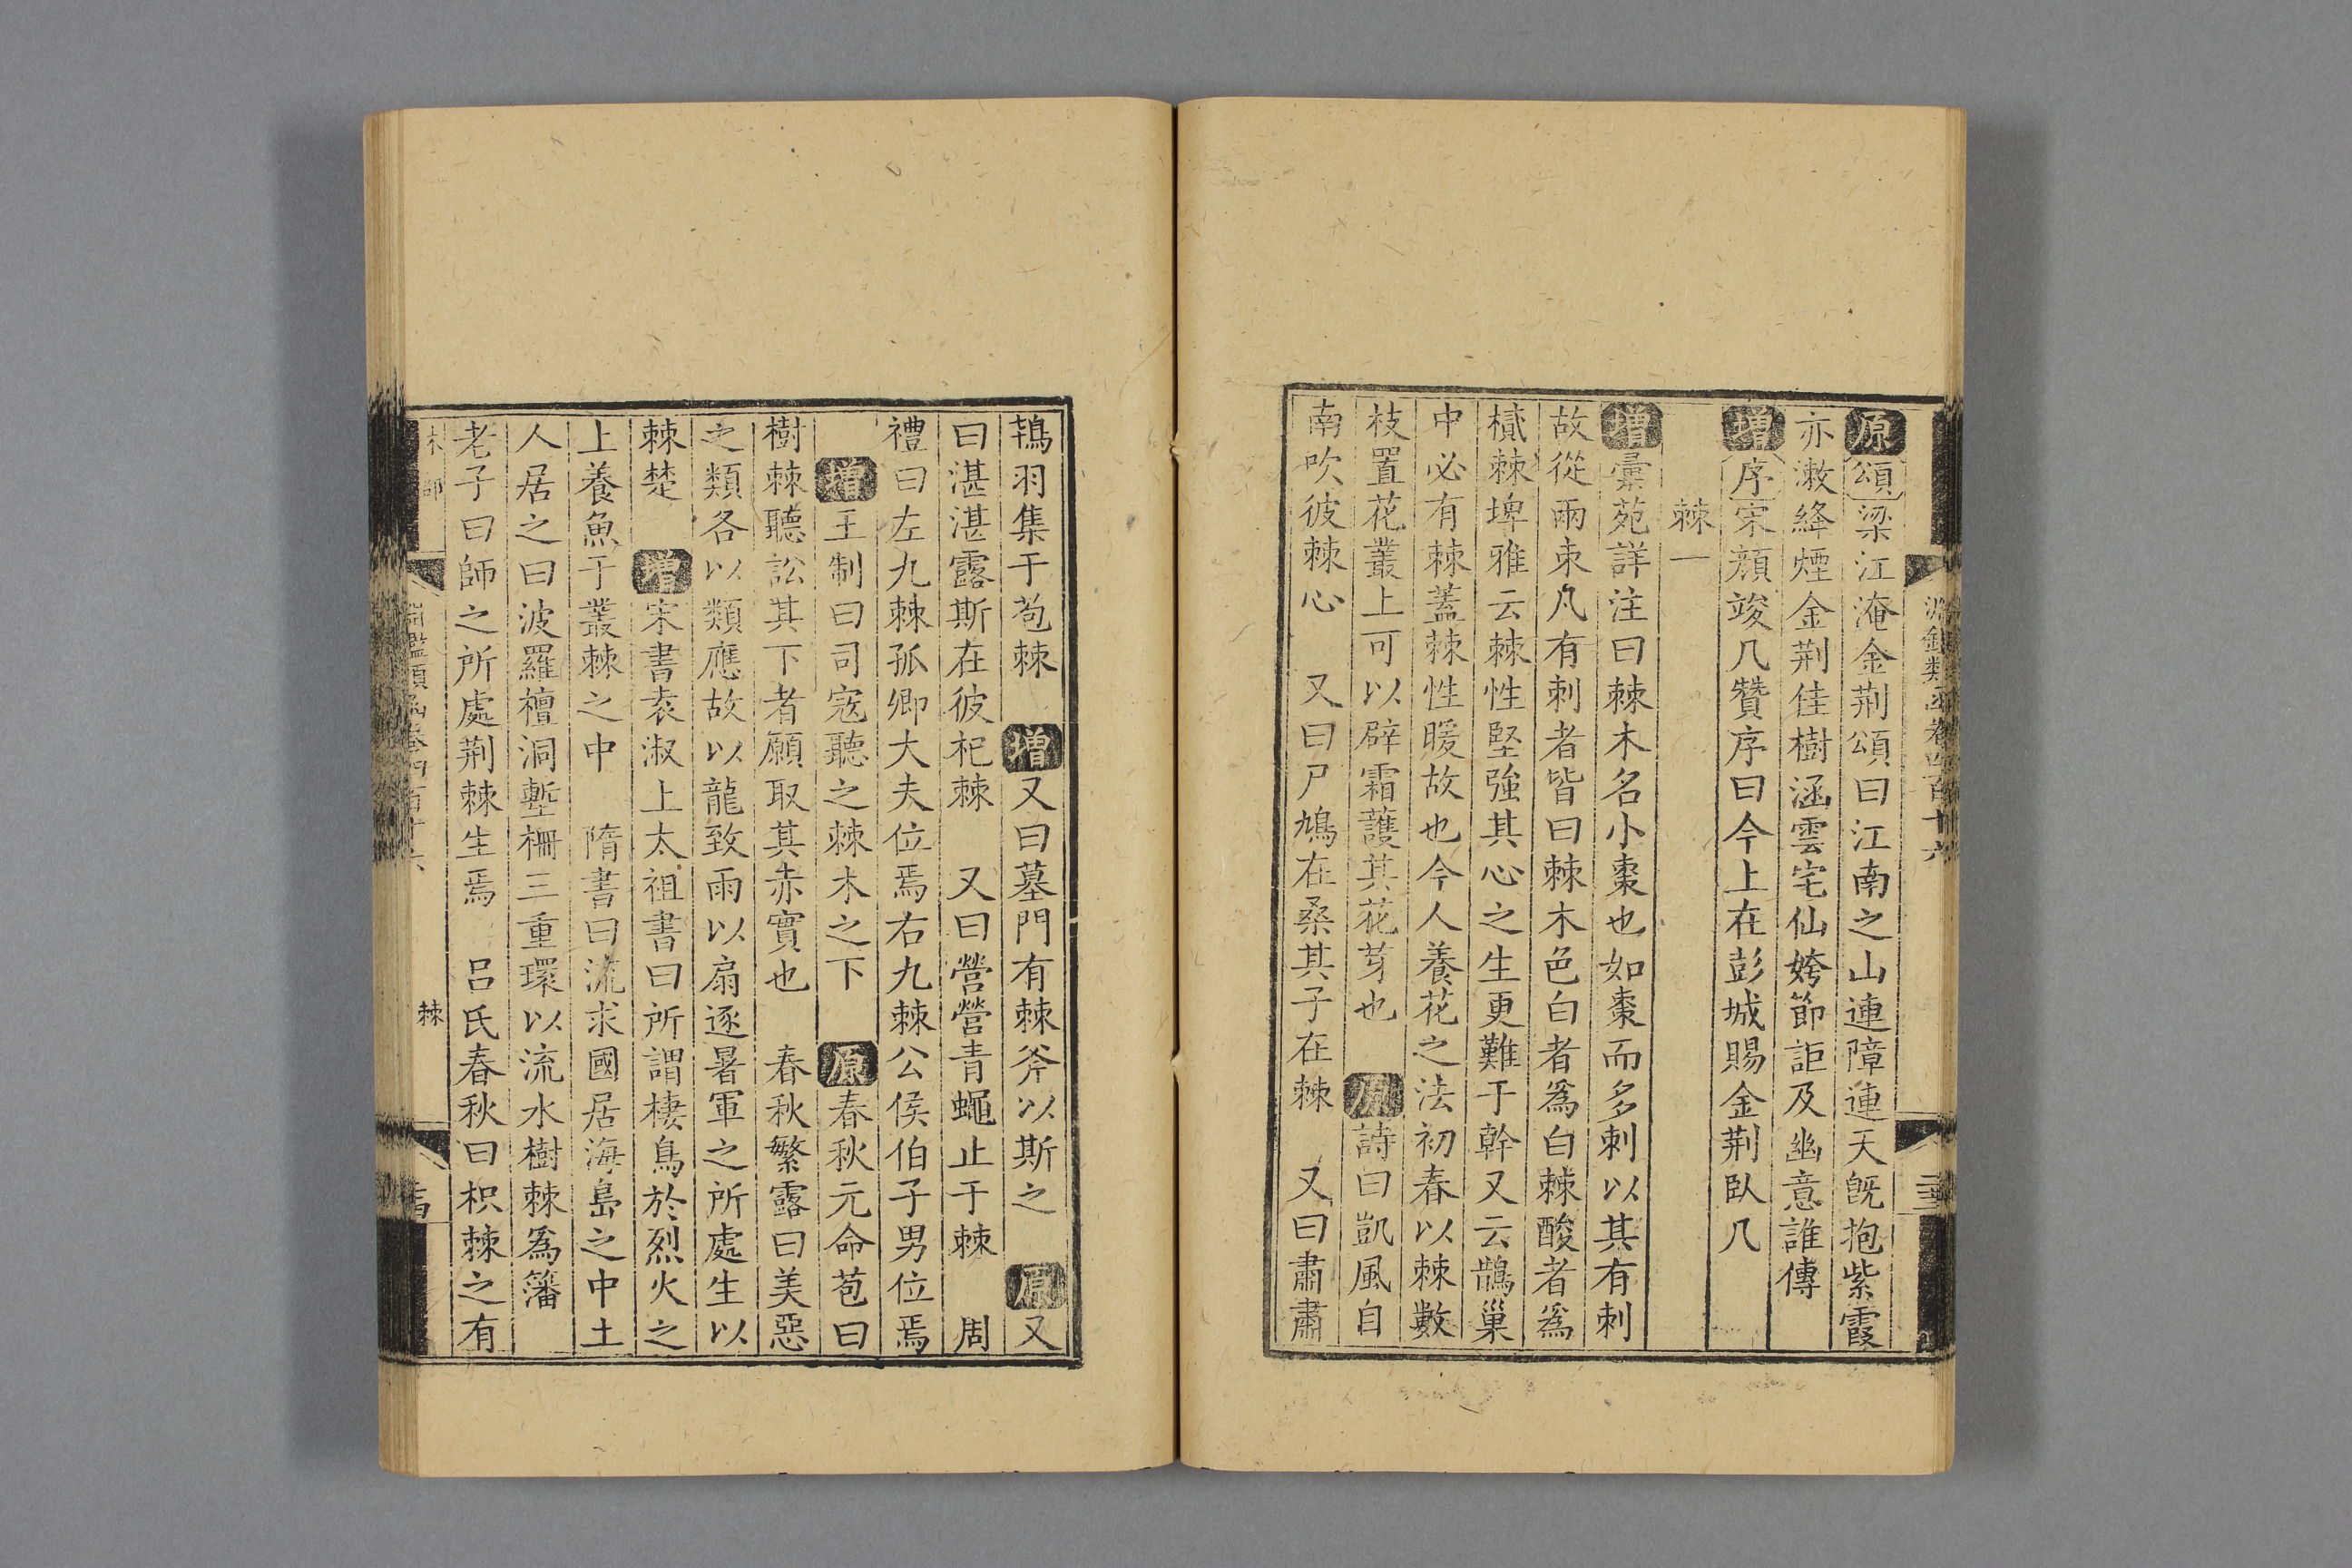 原頌梁江淹金荆頌曰江南之山連障連天旣抱紫霞
亦漱絳煙金荆佳樹涵雲宅仙姱節詎及幽意誰傳
增序宋顔竣几贊序曰今上在彭城賜金荆臥几
棘一
增彙苑詳注曰棘木名小棗也如棗而多刺以其有刺
故從兩朿凡有刺者皆曰棘木色白者爲白棘酸者爲
樲棘埤雅云棘性堅強其心之生更難于幹又云鵲巢
中必有棘蓋棘性暖故也今人養花之法初春以棘數
枝置花叢上可以辟霜護其花芽也 原詩曰凱風自
南吹彼棘心 又曰尸鳩在桑其子在棘 又曰肅肅
鴇羽集于苞棘 增又曰墓門有棘斧以斯之 原又
曰湛湛露斯在彼杞棘 又曰營營青蠅止于棘 周
禮曰左九棘孤卿大夫位焉右九棘公侯伯子男位焉
增王制曰司寇聽之棘木之下 原春秋元命苞曰
樹棘聽訟其下者願取其赤實也 春秋繁露曰美惡
之類各以類應故以龍致雨以扇逐暑軍之所處生以
棘楚 增宋書袁淑上太祖書曰所謂棲鳥於烈火之
上養魚于叢棘之中 隋書曰流求國居海島之中土
人居之曰波羅檀洞塹柵三重環以流水樹棘爲籓
老子曰師之所處荆棘生焉 呂氏春秋曰枳棘之有
棘